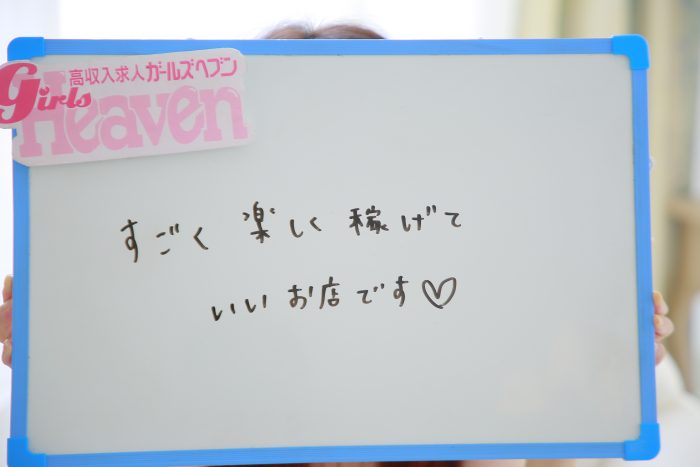 高収入求人ガールズヘブン
Girls
Heaven
すごく 楽しく 稼げて
いい お店です♡